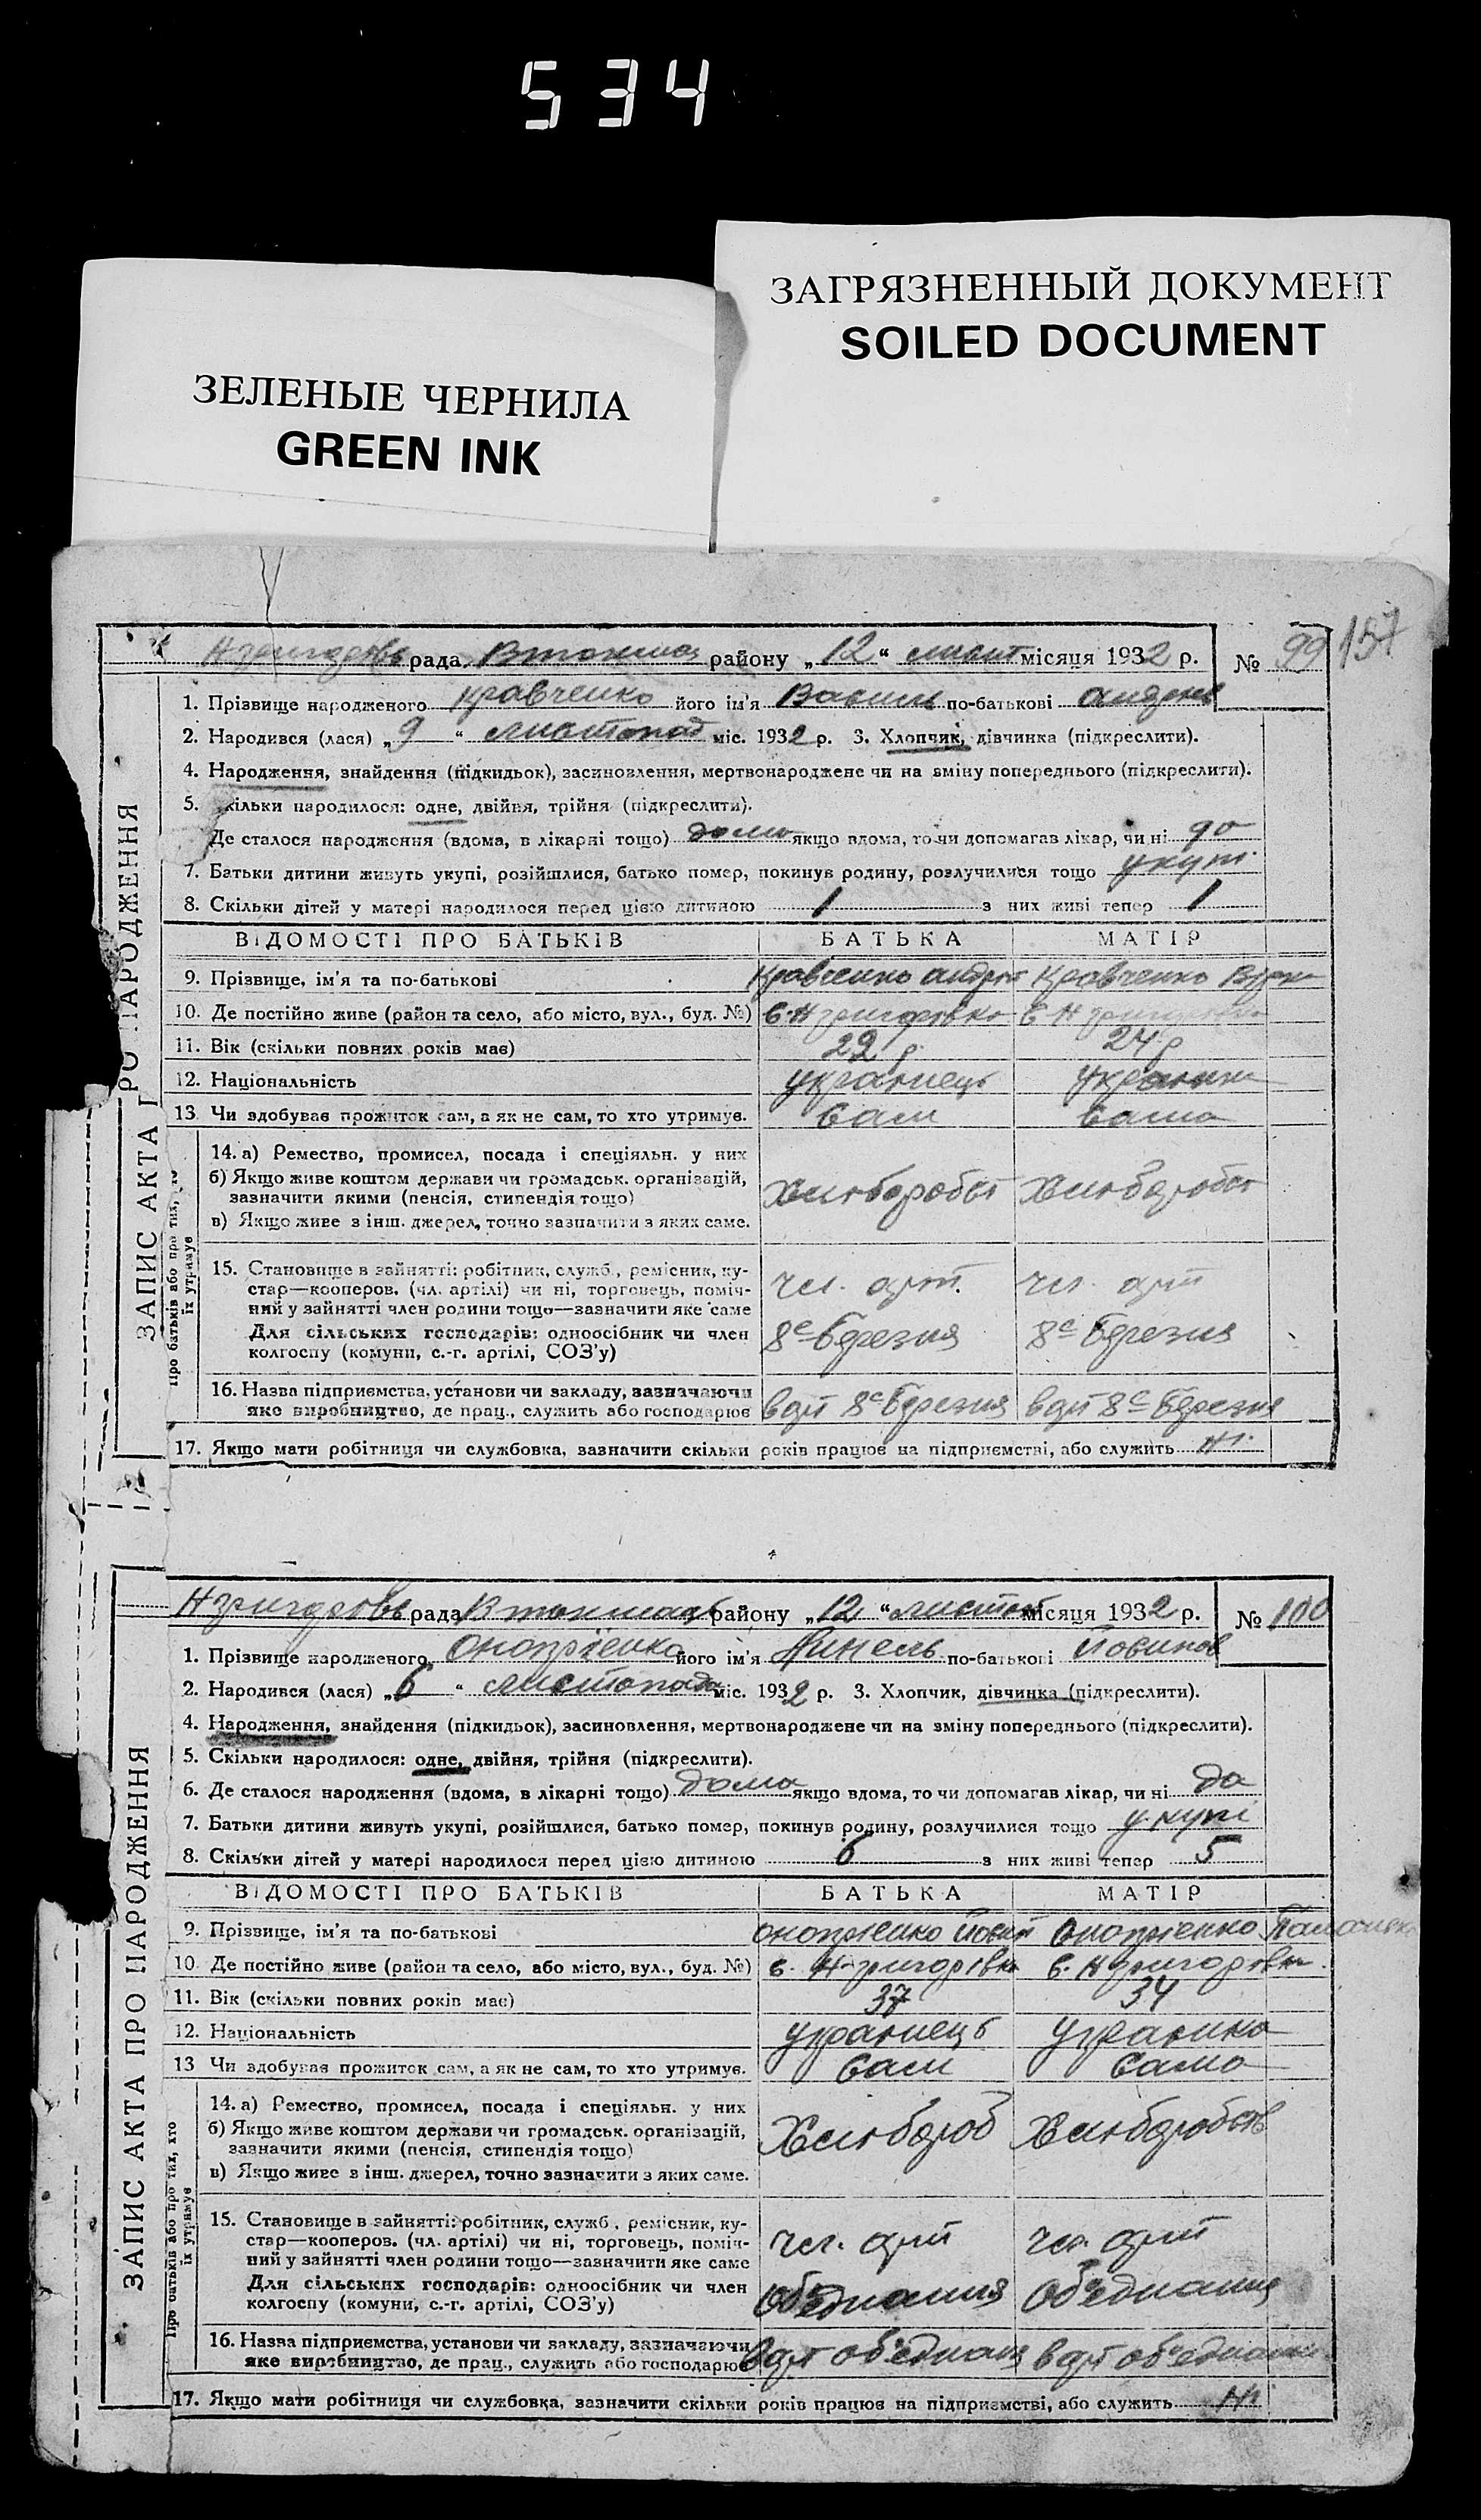 534
ЗАГРЯЗНЕННЫЙ ДОКУМЕНТ
SOILED DOCUMENT
ЗЕЛЕНЫЕ ЧЕРНИЛА
GREEN INK
157
ЗАПИС АКТА ПРО НАРОДЖЕННЯ
Н григоровс рада району „12“ лист місяця 1932 р. № 99
1. Прізвище народженого Кравченко його ім'я Василь по-батькові
2. Народився (лася) „9“ листопад міс. 1932 р. 3. Хлопчик, дівчинка (підкреслити).
4. Народження, знайдення (підкидьок), засиновлення, мертвонароджене чи на зміну попереднього (підкреслити).
5. кільки народилося: одне, двійня, трійня (підкреслити).
Де сталося народження (вдома, в лікарні тощо) дома якщо вдома, то чи допомагав лікар, чи ні до
7. Батьки дитини живуть укупі, розійшлися, батько помер, покинув родину, розлучилися тощо укупі
8. Скільки дітей у матері народилося перед цією дитиною 1 з них живі тепер 1
ВІДОМОСТІ ПРО БАТЬКІВ БАТЬКА МАТІР
9. Прізвище, ім'я та по-батькові Кравченко Андрій Кравченко
10. Де постійно живе (район та село, або місто, вул., буд. №) с. Н григорівка с Н григорівка
11. Вік (скільки повних років має) 22 р. 24 р
12. Національність українець
13 Чи здобуває прожиток сам, а як не сам, то хто утримує. Сам Сама
Про батьків або про тих, хто їх утримує
14. а) Ремество, промисел, посада і спеціяльн. у них
б) Якщо живе коштом держави чи громадськ. організацій,
зазначити якими (пенсія, стипендія тощо) Хлибороб Хлибороб
в) Якщо живе з інш. джерел, точно зазначити з яких саме.
15. Становище в зайнятті: робітник, служб., ремісник, ку-
стар—кооперов. (чл. артілі) чи ні, торговець, поміч- чл. арт. чл. арт
ний у зайнятті член родини тощо—зазначити яке саме
Для сільських господарів: одноосібник чи член 8е березня 8е березня
колгоспу (комуни, с.-г. артілі, СОЗ'у)
16. Назва підприємства, установи чи закладу, зазначаючи
яке виробництво, де прац., служить або господарює в арт 8е березня в арт 8е березня
17. Якщо мати робітниця чи службовка, зазначити скільки років працює на підприємстві, або служить ні
ЗАПИС АКТА ПРО НАРОДЖЕННЯ
Н григоровс рада району „12“ листоп місяця 1932 р. № 100
1. Прізвище народженого Онопрієнко його ім'я Нинель по-батькові
2. Народився (лася) „6“ листопада міс. 1932 р. 3. Хлопчик, дівчинка (підкреслити).
4. Народження, знайдення (підкидьок), засиновлення, мертвонароджене чи на зміну попереднього (підкреслити).
5. Скільки народилося: одне, двійня, трійня (підкреслити).
6. Де сталося народження (вдома, в лікарні тощо) дома якщо вдома, то чи допомагав лікар, чи ні да
7. Батьки дитини живуть укупі, розійшлися, батько помер, покинув родину, розлучилися тощо укупі
8. Скільки дітей у матері народилося перед цією дитиною 6 з них живі тепер 5
ВІДОМОСТІ ПРО БАТЬКІВ БАТЬКА МАТІР
9. Прізвище, ім'я та по-батькові Онопрієнко Онопрієнко
10. Де постійно живе (район та село, або місто, вул., буд. №) с. Н-григорівка с. Н григорівка
11. Вік (скільки повних років має) 37 34
12. Національність українець українка
13 Чи здобуває прожиток сам, а як не сам, то хто утримує. Сам Сама
Про батьків або про тих, хто їх утримує
14. а) Ремество, промисел, посада і спеціяльн. у них
б) Якщо живе коштом держави чи громадськ. організацій,
зазначити якими (пенсія, стипендія тощо) Хлибороб Хлиборобств
в) Якщо живе в інш. джерел, точно зазначити з яких саме.
15. Становище в зайнятті: робітник, служб., ремісник, ку-
стар—кооперов. (чл. артілі) чи ні, торговець, поміч- чл. арт чл. арт
ний у зайнятті член родини тощо—зазначити яке саме
Для сільських господарів: одноосібник чи член Об'єднання Об'єднання
колгоспу (комуни, с.-г. артілі, СОЗ'у)
16. Назва підприємства, установи чи закладу, зазначаючи
яке виробництво, де прац., служить або господарює в арт об'єднання в арт об'єднання
17. Якщо мати робітниця чи службовка, зазначити скільки років працює на підприємстві, або служить ні